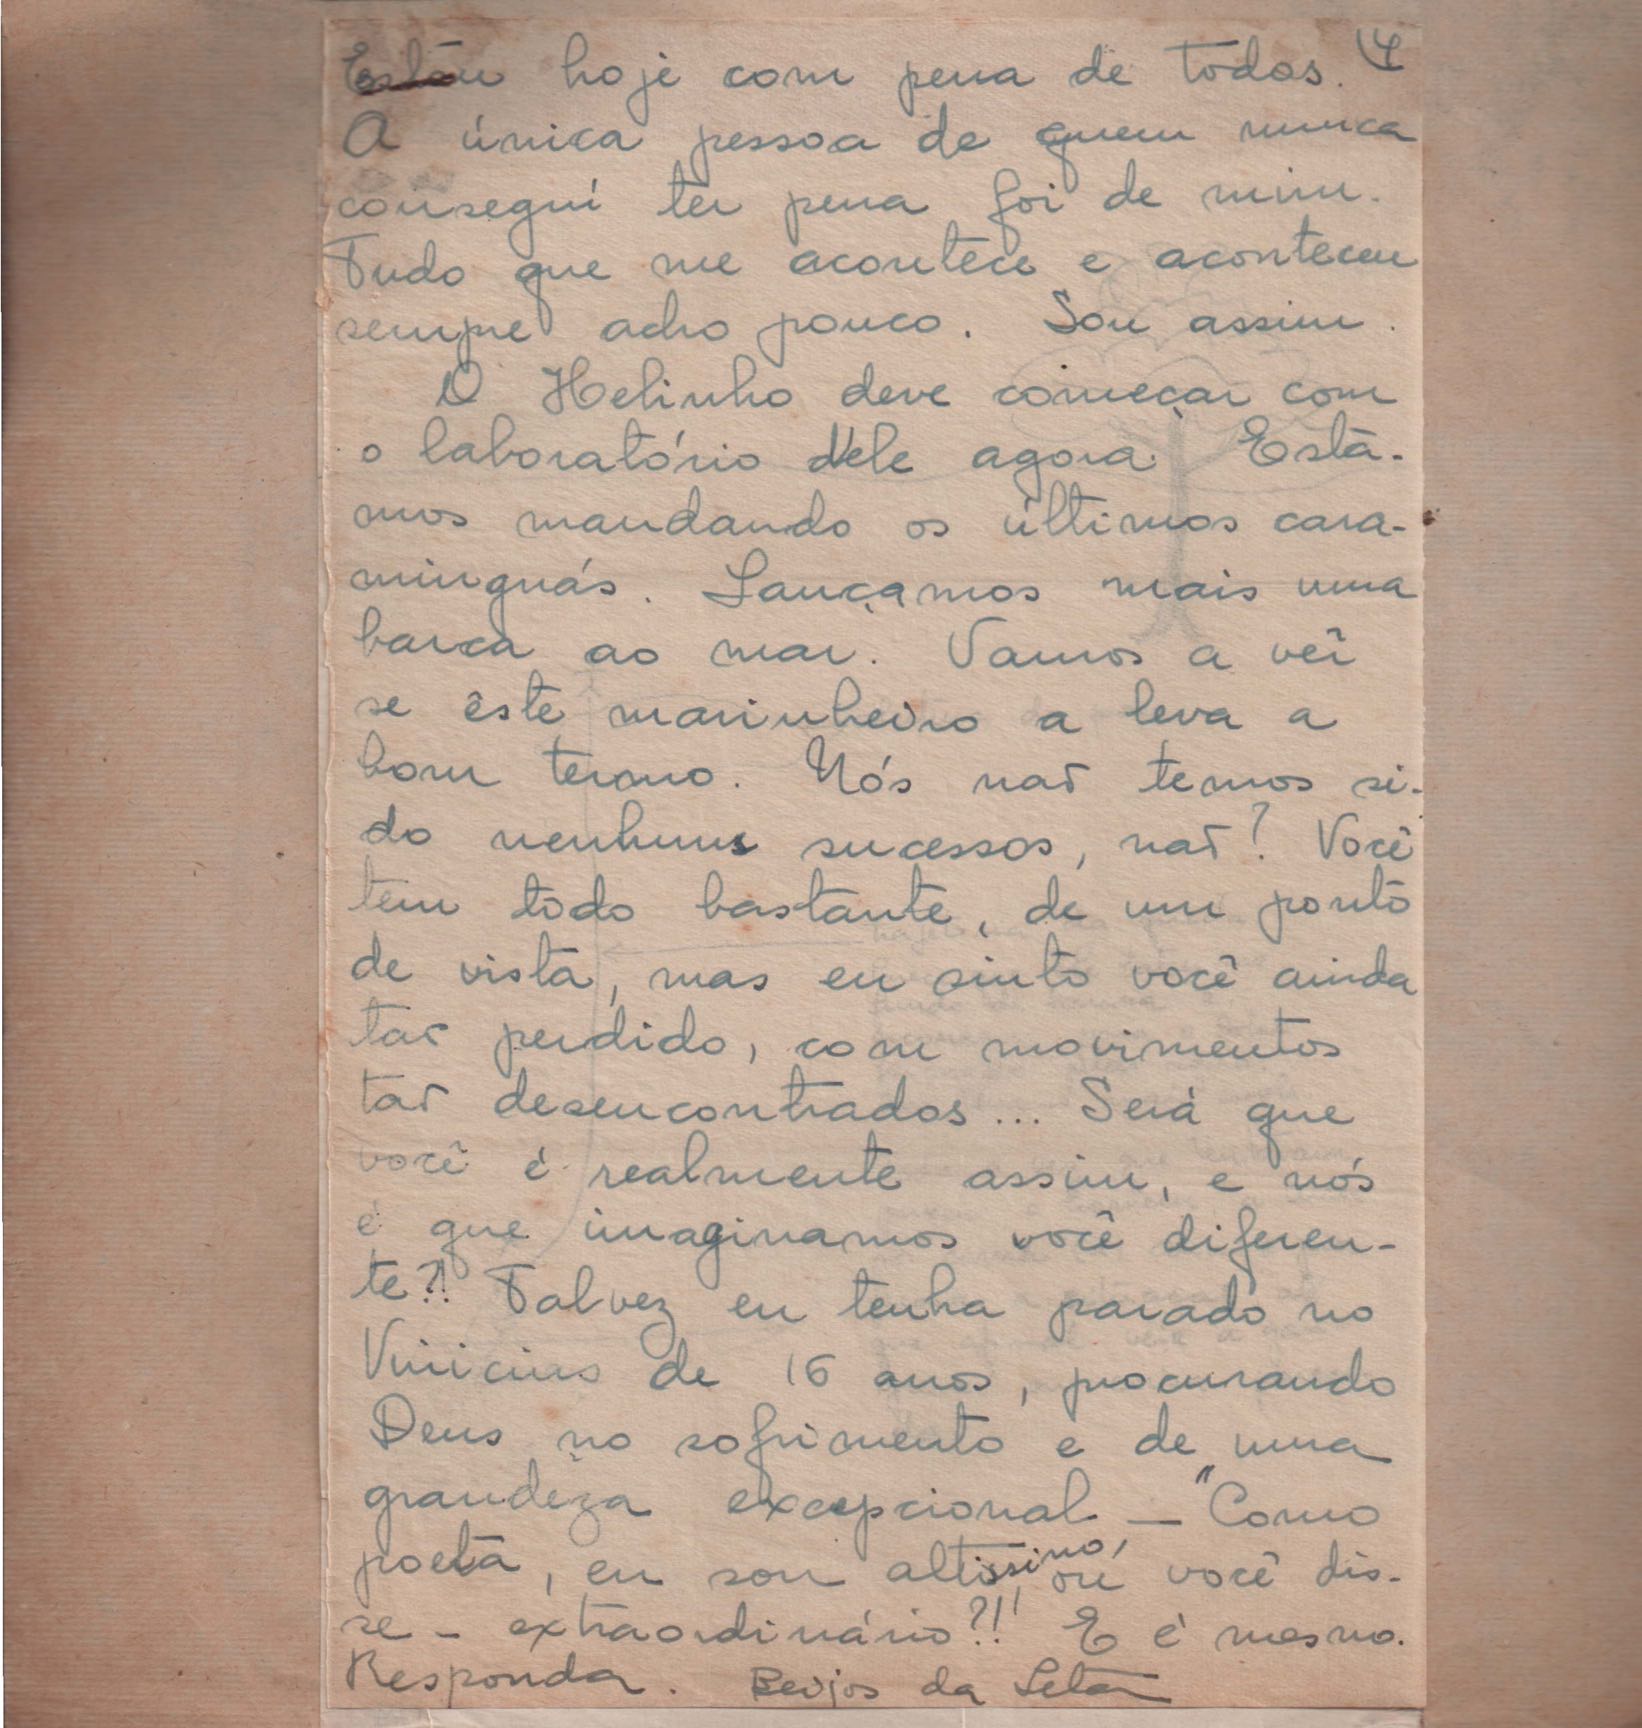 Estou hoje com pena de todos. 4
A única pessoa de quem nunca
conseguí ter pena foi de mim.
Tudo que me acontece e aconteceu
sempre acho pouco. Sou assim.
O Helinho deve começar com
o laboratório dêle agora. Esta-
mos mandando os últimos cara-
minguás. Lançamos mais uma
barca ao mar. Vamos a vêr
se êste marinheiro a leva a
bom termo. Nós não temos si-
do nenhuns sucessos, não? Você
tem tido bastante, de um ponto
de vista, mas eu sinto você ainda
tão perdido, com movimentos
tão desencontrados... Será que
você é realmente assim, e nós
é que imaginamos você diferen-
te?! Talvez eu tenha parado no
Vinicius de 16 anos, procurando
Deus no sofrimento e de uma
grandeza excepcional — "Como
poeta, eu sou altissimo, ou você dis-
se - extraordinário?!! E é mesmo.
Responda. Beijos da Leta